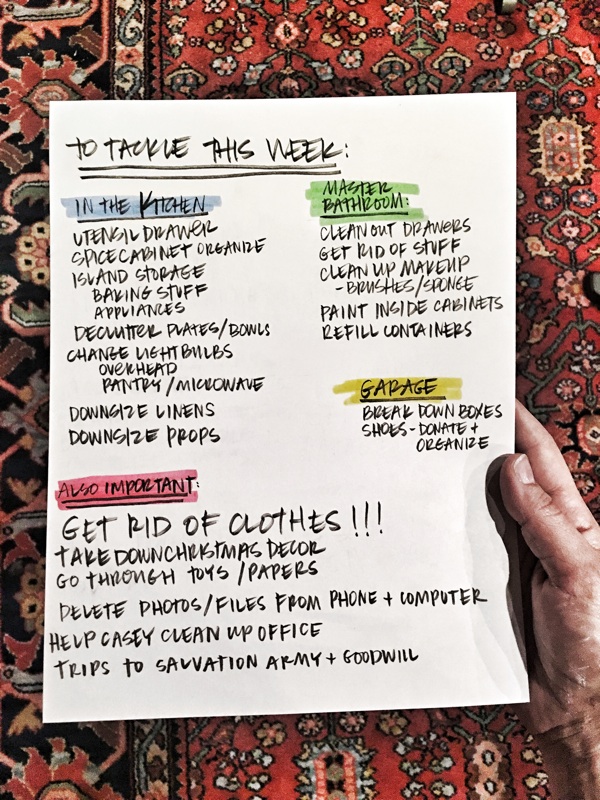 TO TACKLE THIS WEEK:
IN THE KITCHEN
UTENSIL DRAWER
SPICE CABINET ORGANIZE
ISLAND STORAGE
BAKING STUFF
APPLIANCES
DECLUTTER PLATES/BOWLS
CHANGE LIGHTBULBS
OVERHEAD
PANTRY/MICROWAVE
DOWNSIZE LINENS
DOWNSIZE PROPS
MASTER
BATHROOM:
CLEAN OUT DRAWERS
GET RID OF STUFF
CLEAN UP MAKEUP
- BRUSHES/SPONGE
PAINT INSIDE CABINETS
REFILL CONTAINERS
GARAGE
BREAK DOWN BOXES
SHOES - DONATE +
ORGANIZE
ALSO IMPORTANT:
GET RID OF CLOTHES!!!
TAKE DOWN CHRISTMAS DECOR
GO THROUGH TOYS/PAPERS
DELETE PHOTOS/FILES FROM PHONE + COMPUTER
HELP CASEY CLEAN UP OFFICE
TRIPS TO SALVATION ARMY + GOODWILL